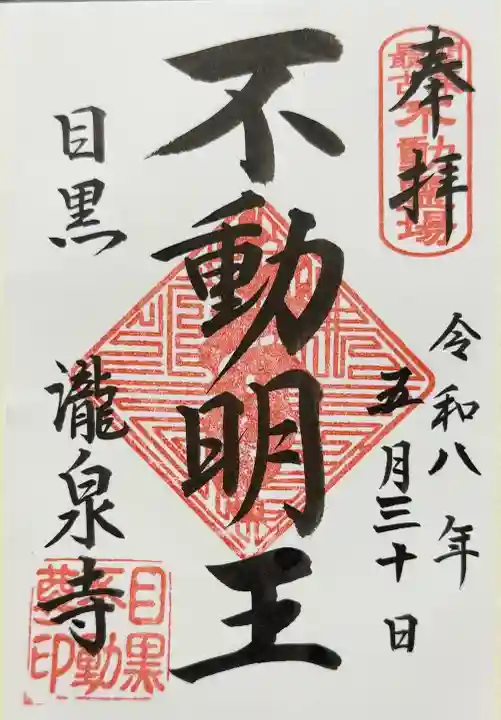 奉拝
関東最古不動霊場
令和八年
五月三十日
不動明王
目黒
瀧泉寺
目黒不動尊印